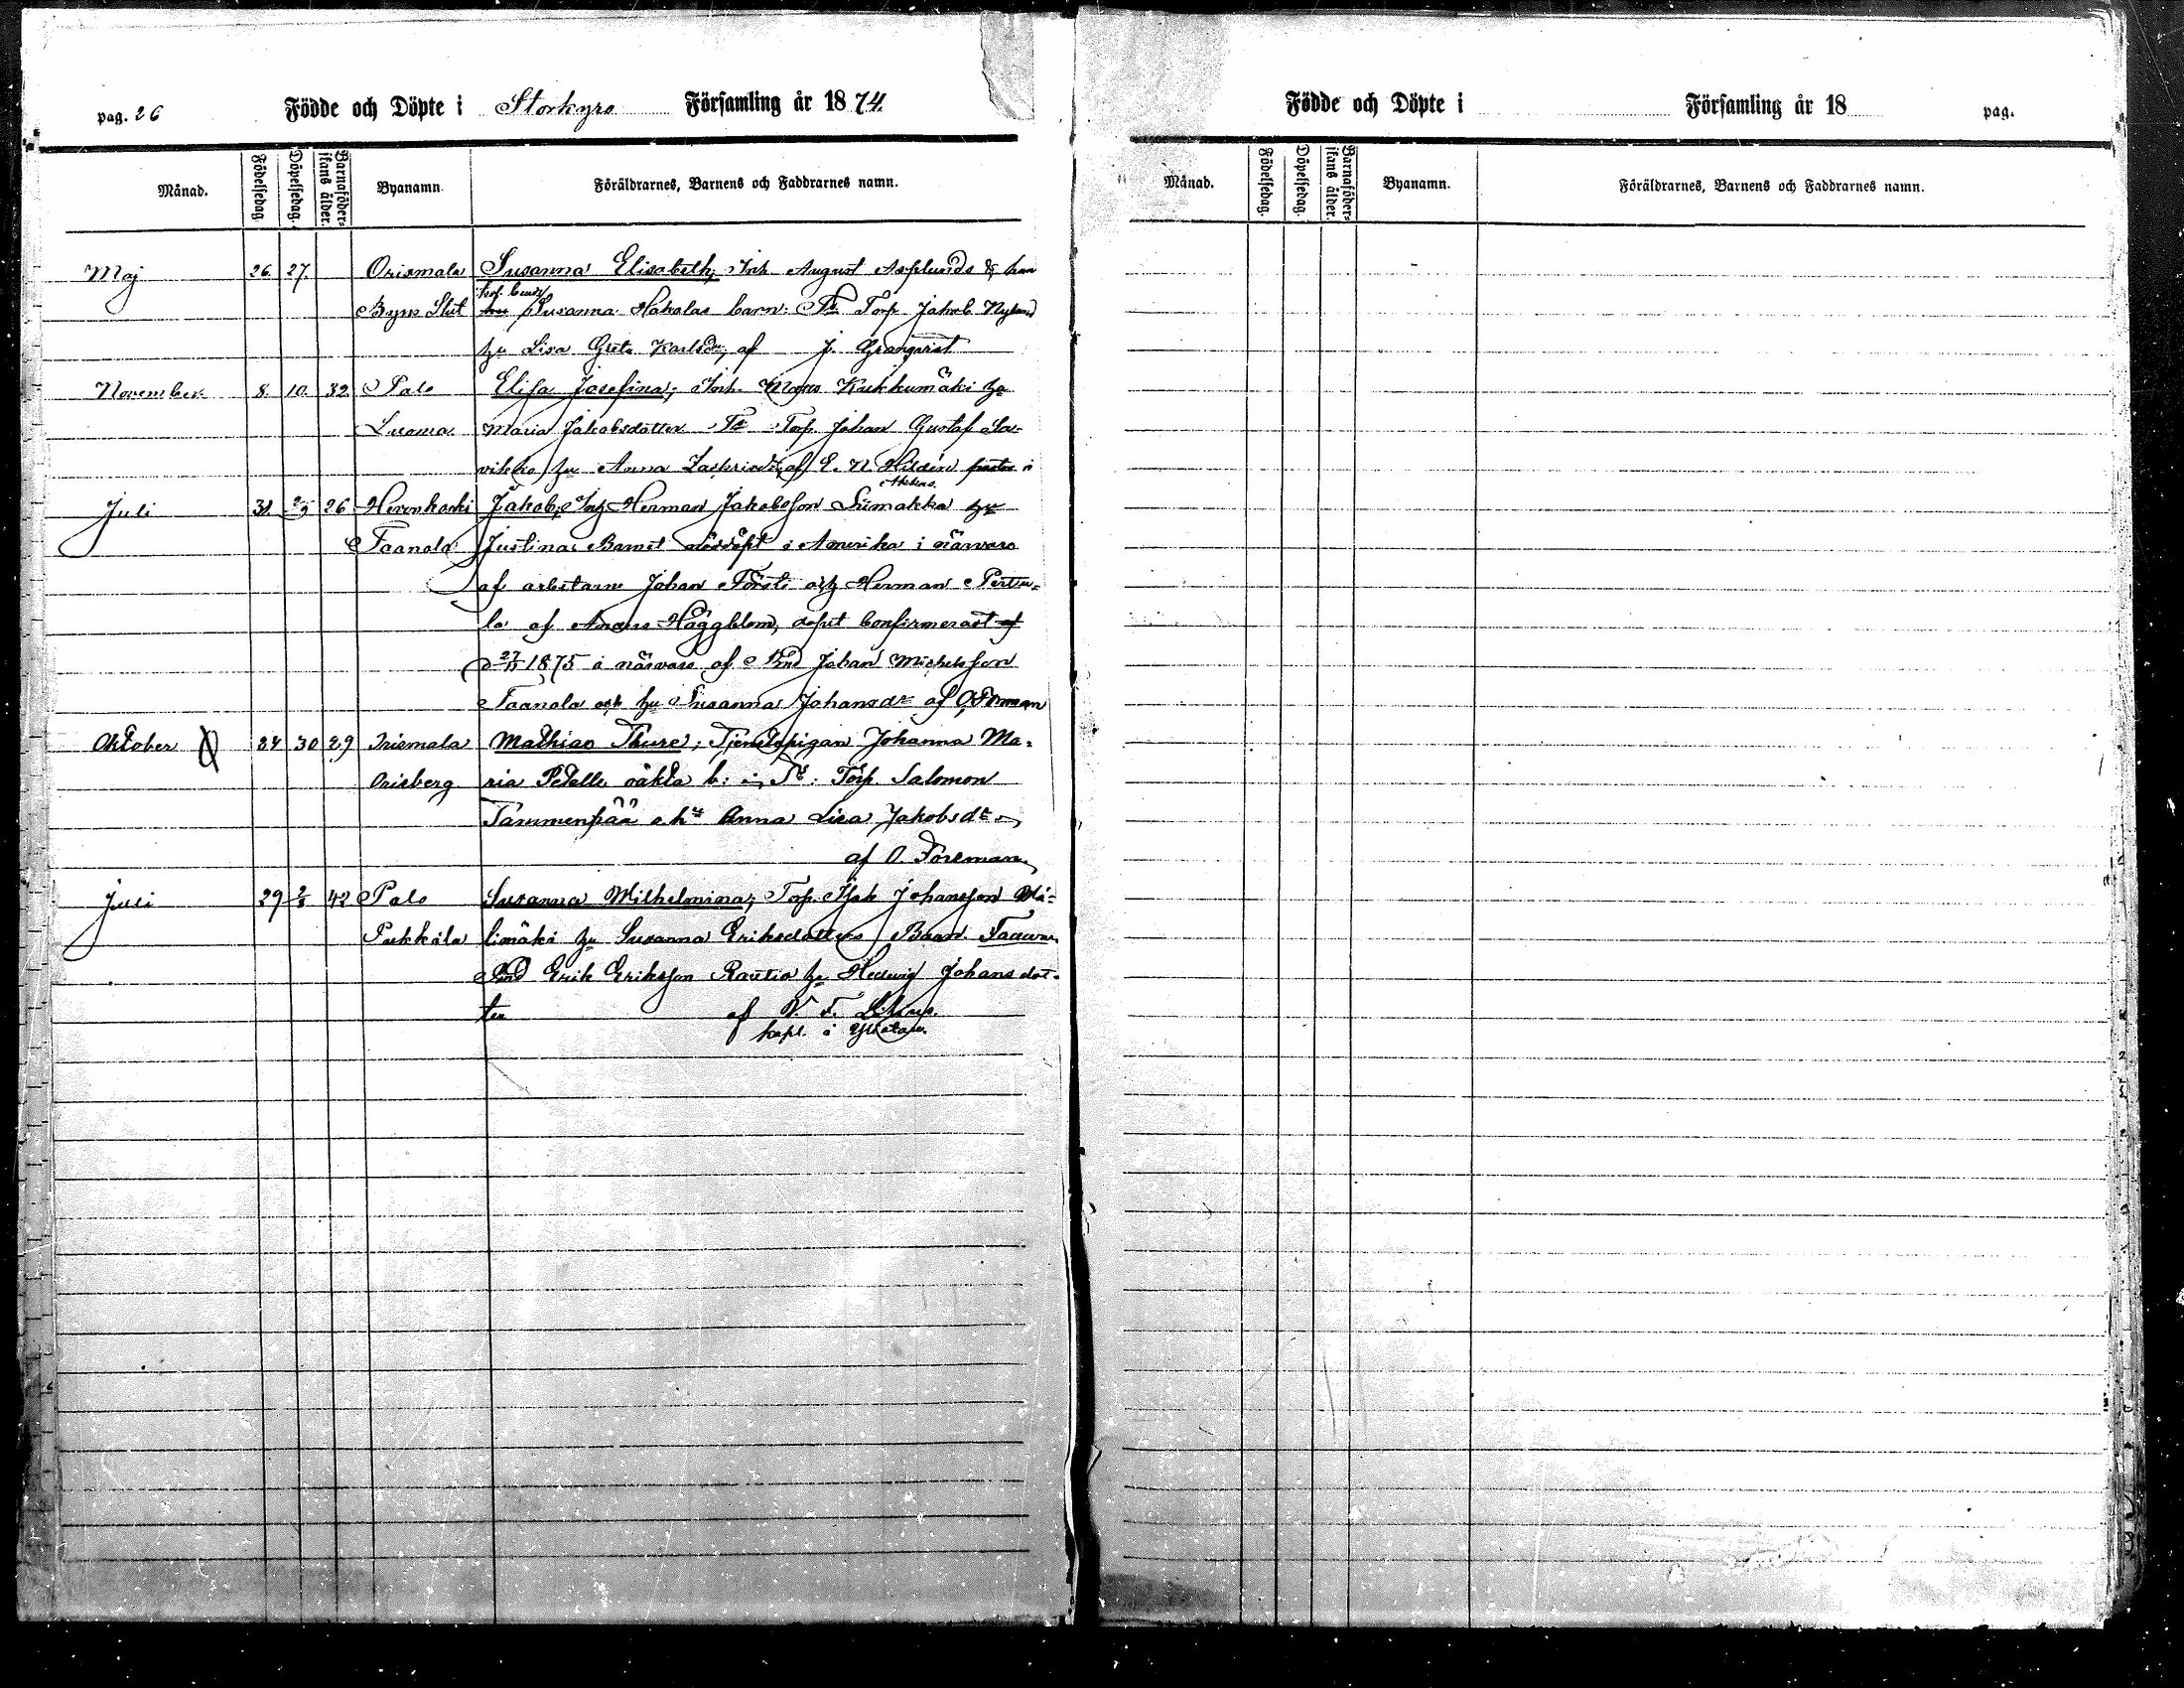 pag. 26 Födde och Döpte i Storkyro Församling år 1874.
Månad. Födelsedag. Döpelsedag. Barnaföderskans ålder. Byanamn. Föräldrarnes, Barnens och Faddrarnes namn.
Maj 26. 27. Orismala Susanna Elisabeth; Inh. August Asplunds &
Byns Slut Susanna Hakalas barn: Torp Jakob Nylund
hu Lisa Greta Karlsdr, af J. Granqvist
November 8. 10. 32 Palo Elisa Josefina; Inh. Kukkumäki hu
Luoma Maria Jakobsdotter Torp. Johan Gustaf Sa-
vikko hu Anna af E. N. Hildén i
Juli 31. 26 Jakob; Herman Jakobsson hu
Taanola Justina; Barnet nöddöpt i Amerika i närvaro
af arbetarne Johan och Herman Pertu-
la af Häggblom, dopet confirmeradt af
d 1875 i närvaro af Bnd Johan Michelsson
Taanola och hu Susanna Johansdr af O. Forsman
Oktober 24 30 29 Orismala Mathias Thure; Tjenstepigan Johanna Ma-
Orisberg ria oäkta b: Torp Salomon
Tammenpää o. hu Anna Lisa Jakobsdr
af O. Forsman
Juli 29 2/8 42 Palo Susanna Wilhelmina; Torp. Isak Johansson
Pukkila limäki hu Susanna Eriksdotters Barn.
Bnd Erik Eriksson Rautio hu Hedwig Johansdot-
ter af
kapl. i Ylistaro.
Födde och Döpte i Församling år 18 pag.
Månad. Födelsedag. Döpelsedag. Barnaföderskans ålder. Byanamn. Föräldrarnes, Barnens och Faddrarnes namn.